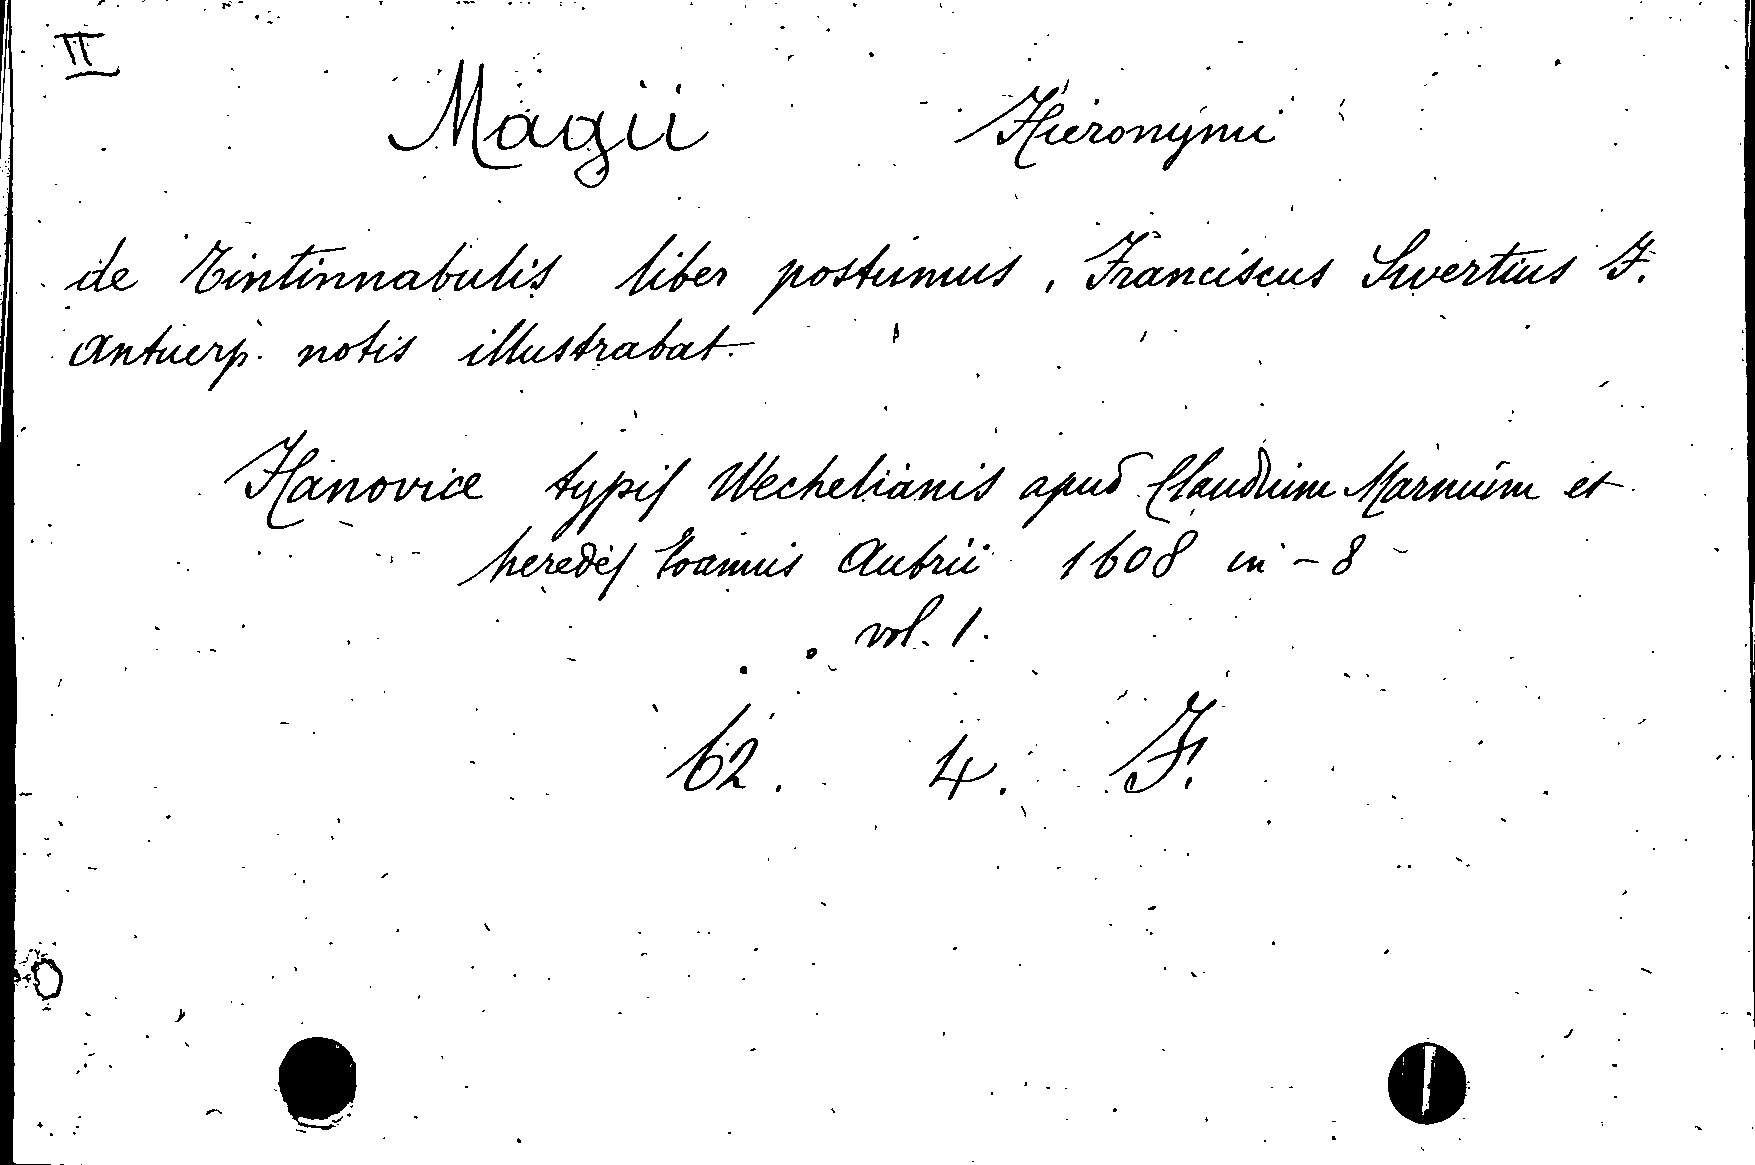 II
Magii Hieronymi
de Tintinnabulis liber postumus, Franciscus Swertius F.
Antuerp. notis illustrabat.
Hanoviae typis Wechelianis apud Claudium Marnium et
heredes Ioannis Aubrii 1608 in-8
vol. 1.
62. 4. F.